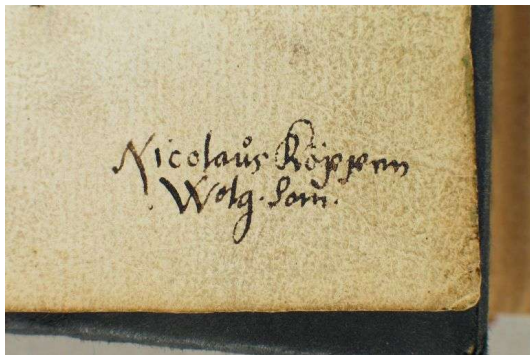 Nicolaůs Köppen
Wolg. Pom.